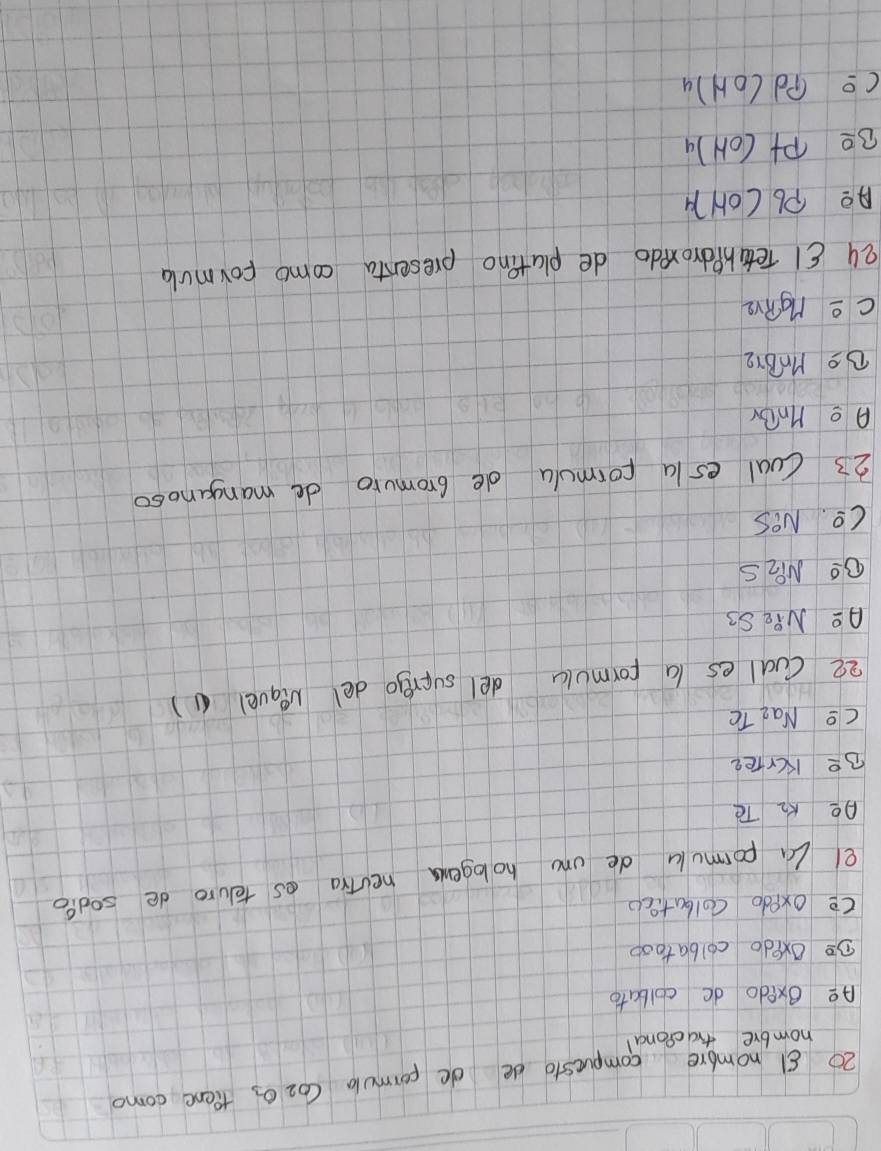 20 El nombre compuesto de de formula Co2O3 tiene como
nombre tracional
A= Oxido de colbato
B= Oxido colbatoso
C= Oxido Colbatico
21 La formula de una hologena neutra es teluro de sodio
A= K2 Te
B= KrTe2
C= Na2 Te
22 Cual es la formula del sufrigo del Niquel (I)
A= Ni2S3
B= Ni2S
C= NiS
23 Cual es la formula de bromuro de manganoso
A= MnBr
B= MnBr2
C= MgBr2
24 El Tetahidroxido de platino presenta como formula
A= Pb(OH)4
B= Pt(OH)4
C= Pd(OH)4